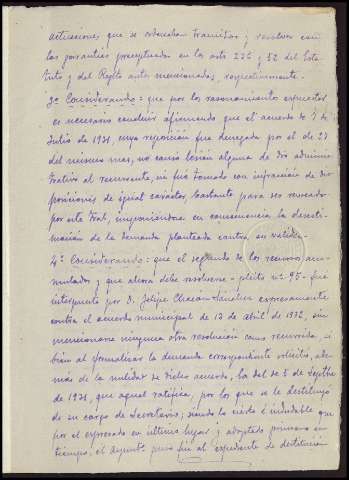 actuaciones, que se ordenaban tramitar y resolver con
las garantías preceptuadas en los arts 226 y 52 del Esta-
tuto y del Regto antes mencionados, respectivamente.
3º Considerando: que por los razonamientos expuestos
es necesario concluir afirmando que el acuerdo de 7 de
Julio de 1931, cuya reposición fue denegada por el de 27
del mismo mes, no causó lesión alguna de dro adminis-
trativo al recurrente, ni fué tomado con infracción de dis-
posiciones de igual carácter, bastante para ser revocado
por este Tral, imponiéndose en consecuencia la desesti-
mación de la demanda planteada contra su validez.
4º Considerando: que el segundo de los recursos acu-
mulados y que ahora debe resolverse - pleito nº 95 - fué
interpuesto por D. Felipe Chacón Sánchez expresamente
contra el acuerdo municipal de 13 de abril de 1932, sin
mencionarse ninguna otra resolución como recurrida, si
bien al formalizar la demanda correspondiente solicitó, ade-
más de la nulidad de dicho acuerdo, la del de 5 de Septbre
de 1931, que aquel ratifica, por los que se le destituyó
de su cargo de Secretario; siendo lo cierto é indudable que
por el expresado en último lugar y adoptado primero en
tiempo, el Ayuntº puso fin al expediente de destitución